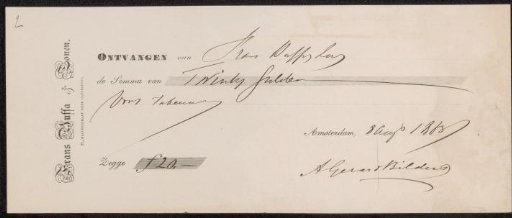 2
ONTVANGEN van Frans Buffa &
de Somma van Twintig Gulden
Voor
Amsterdam, 8 Aug 1862
Zegge f 20.—
A Gerard Bilders
Frans Buffa & Zonen.